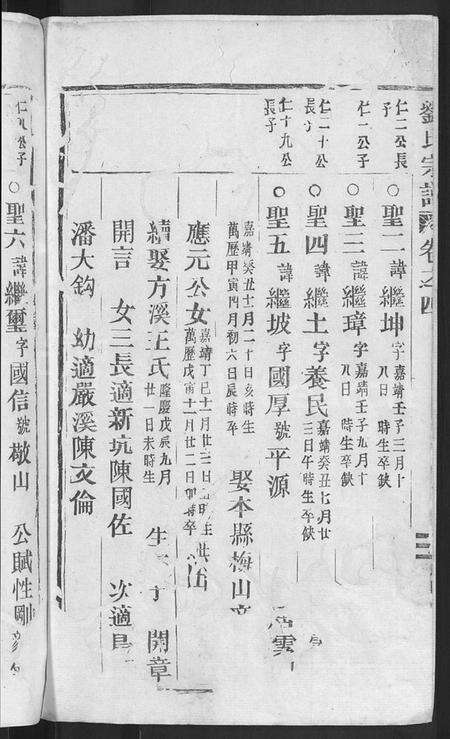 劉氏宗譜 卷之四
仁二公長子
○聖一諱繼坤字 嘉靖壬子三月十八日 時生卒缺
仁一公子
○聖三諱繼璋字 嘉靖壬子九月十八日 時生卒缺
仁二十公長子
○聖四諱繼土字養民 嘉靖癸丑七月廿三日午時生卒缺
仁十九公長子
○聖五諱繼坡字國厚號平源
嘉靖癸丑十二月二十日亥時生
萬歷甲寅四月初六日辰時卒
娶本縣梅山
應元公女 嘉靖丁巳十一月廿三日
萬歷戊寅十一月廿二日 時卒
續娶方溪王氏 隆慶戊辰九月廿一日未時生
生 子 開章
開言 女三長適新坑陳國佐 次適
潘大鈎 幼適嚴溪陳文倫
仁九公子
○聖六諱繼璽字國信號橄山 公賦性剛